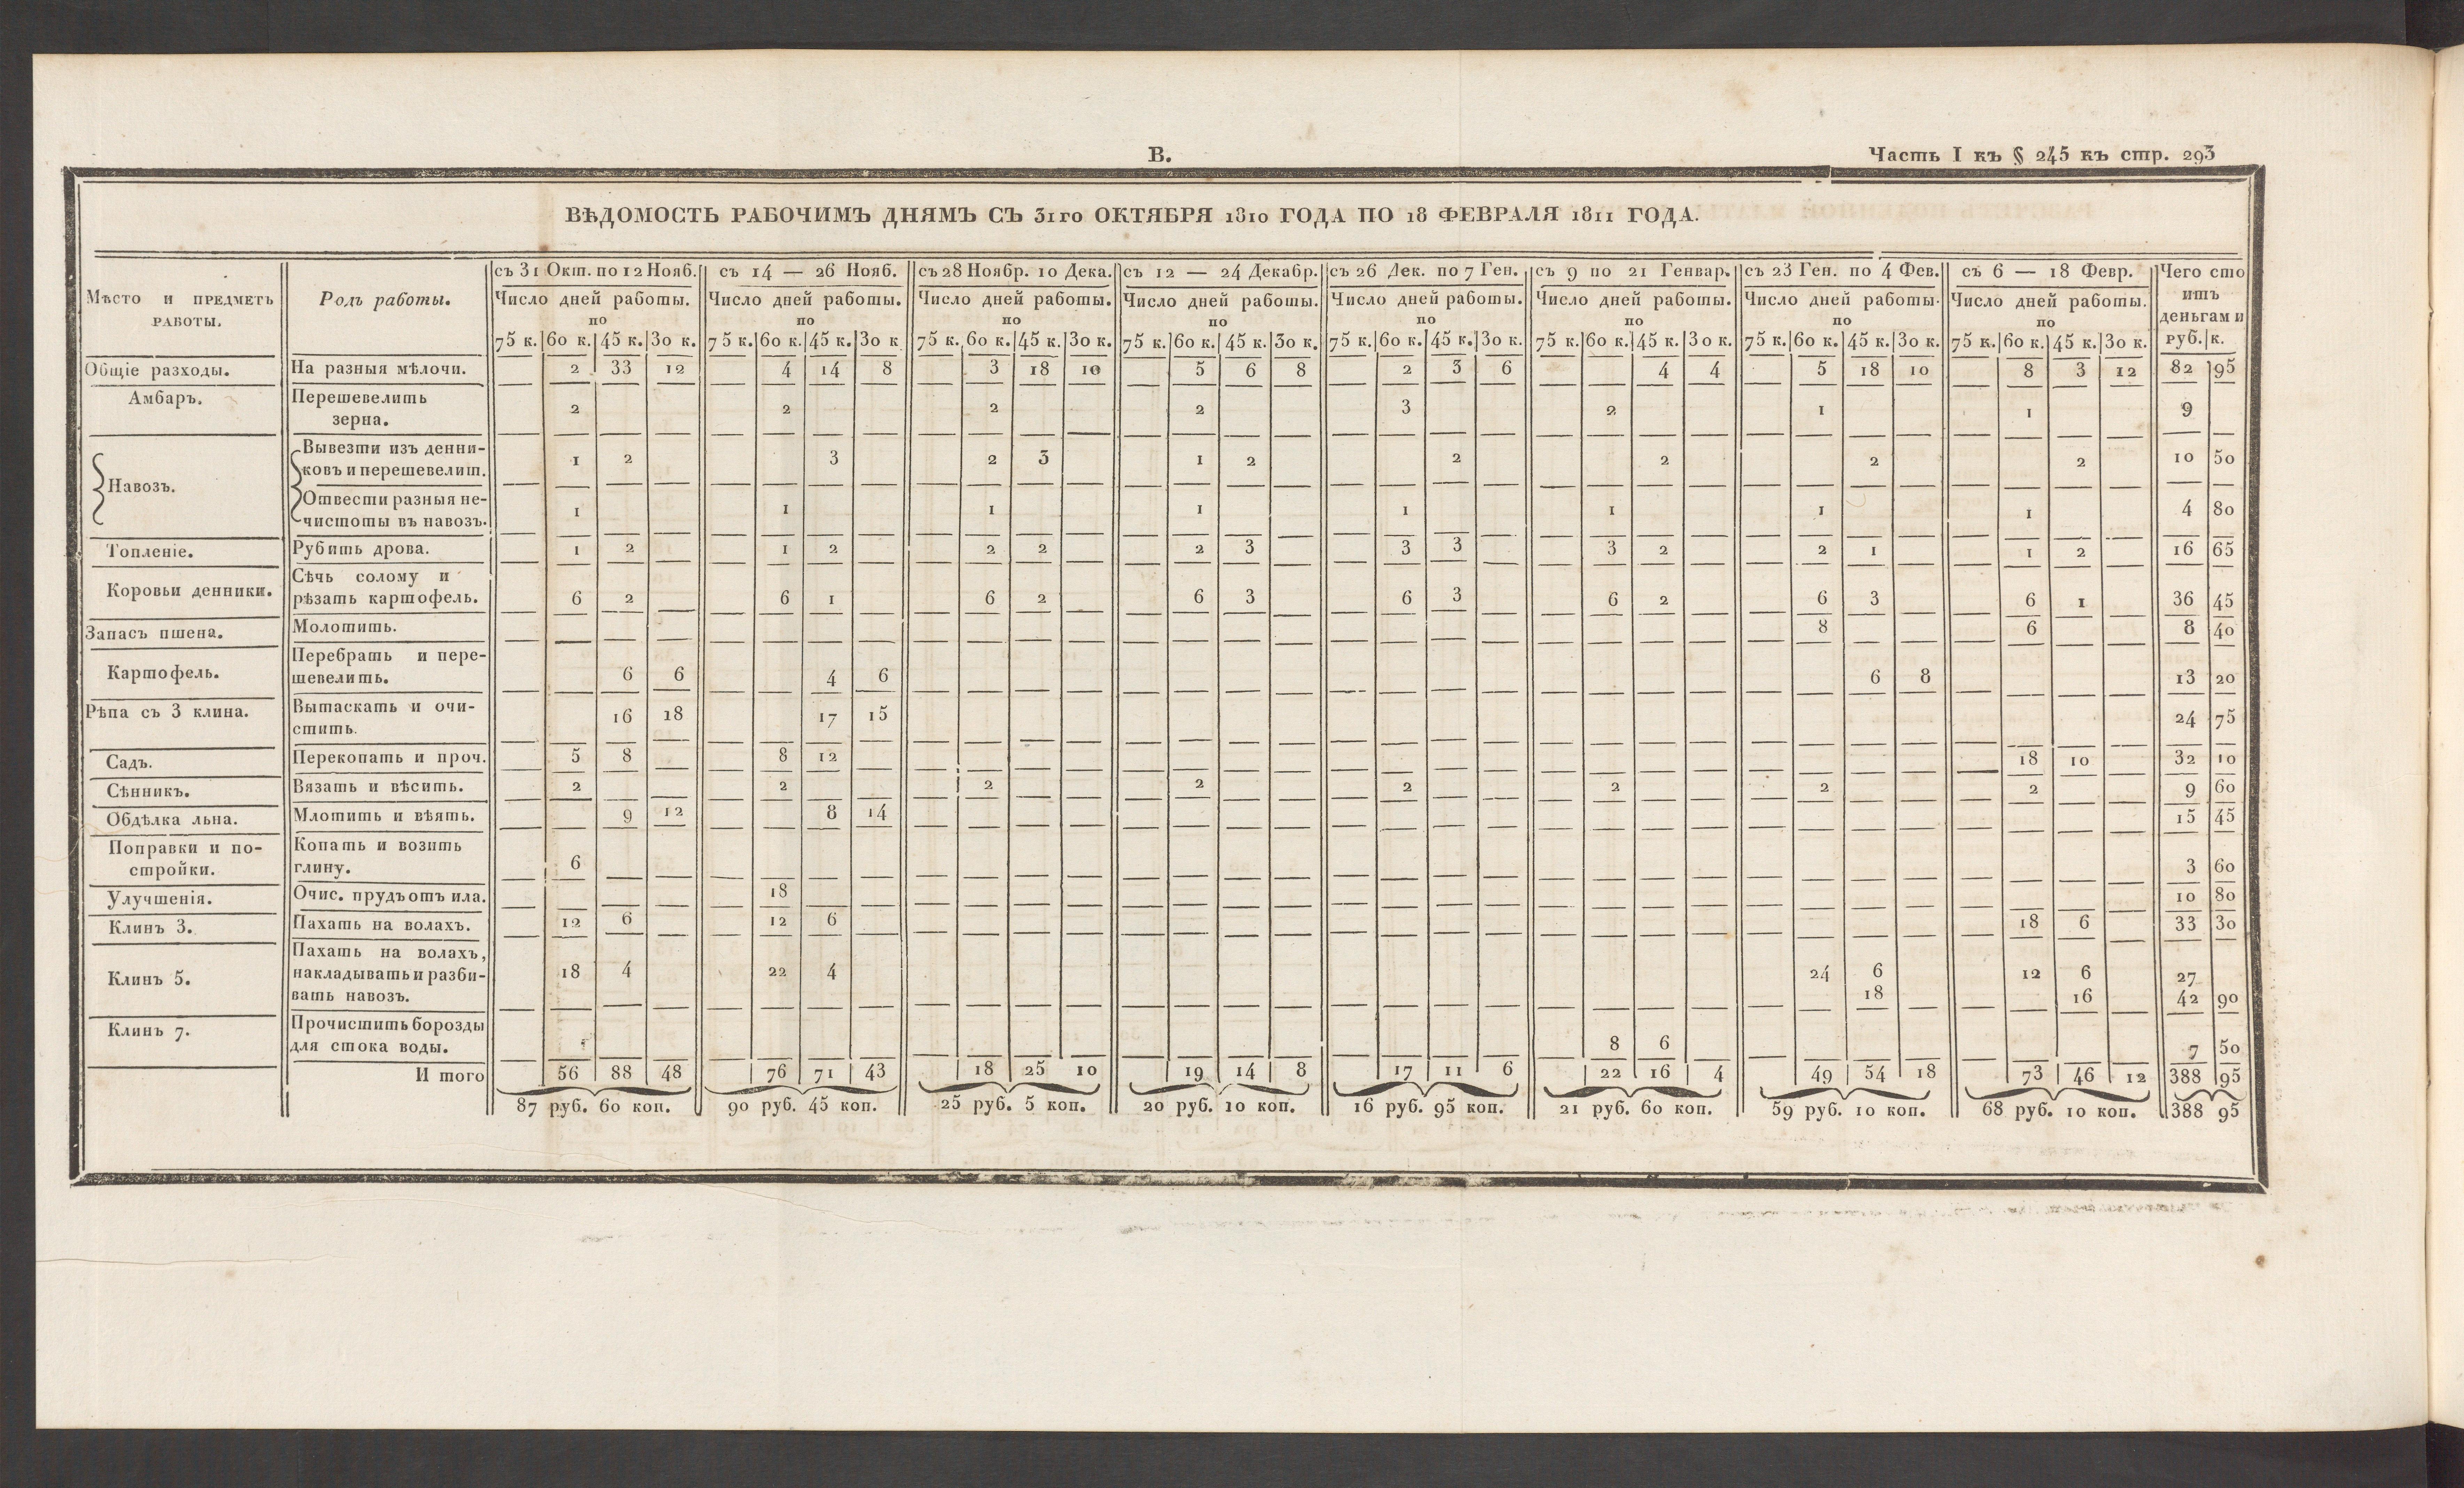 В.
Часть I къ § 245 къ стр. 293
ВѢДОМОСТЬ РАБОЧИМЪ ДНЯМЪ СЪ 31го ОКТЯБРЯ 1810 ГОДА ПО 18 ФЕВРАЛЯ 1811 ГОДА.
Мѣсто и предметъ работы. Родъ работы. съ 31 Окт. по 12 Нояб. съ 14 — 26 Нояб. съ 28 Ноябр. 10 Дека. съ 12 — 24 Декабр. съ 26 Дек. по 7 Ген. съ 9 по 21 Генвар. съ 23 Ген. по 4 Фев. съ 6 — 18 Февр. Чего сто итъ деньгами
Число дней работы. Число дней работы. Число дней работы. Число дней работы. Число дней работы. Число дней работы. Число дней работы. Число дней работы.
по по по по по по по по
75 к. 60 к. 45 к. 30 к. 75 к. 60 к. 45 к. 30 к 75 к. 60 к. 45 к. 30 к. 75 к. 60 к. 45 к. 30 к. 75 к. 60 к. 45 к. 30 к. 75 к. 60 к. 45 к. 30 к. 75 к. 60 к. 45 к. 30 к. 75 к. 60 к. 45 к. 30 к. руб. к.
Общіе разходы. На разныя мѣлочи. 2 33 12 4 14 8 3 18 10 5 6 8 2 3 6 4 4 5 18 10 8 3 12 82 95
Амбаръ. Перешевелить
зерна. 2 2 2 2 3 2 1 1 9
Навозъ. Вывезти изъ денни-
ковъ и перешевелит. 1 2 3 2 3 1 2 2 2 2 2 10 50
Отвести разныя не-
чистоты въ навозъ. 1 1 1 1 1 1 1 1 4 80
Топленіе. Рубить дрова. 1 2 1 2 2 2 2 3 3 3 3 2 2 1 1 2 16 65
Коровьи денники. Сѣчь солому и
рѣзать картофель. 6 2 6 1 6 2 6 3 6 3 6 2 6 3 6 1 36 45
Запасъ пшена. Молотить. 8 6 8 40
Картофель. Перебрать и пере-
шевелить. 6 6 4 6 6 8 13 20
Рѣпа съ 3 клина. Вытаскать и очи-
стить. 16 18 17 15 24 75
Садъ. Перекопать и проч. 5 8 8 12 18 10 32 10
Сѣнникъ. Вязать и вѣсить. 2 2 2 2 2 2 2 2 9 60
Обдѣлка льна. Млотить и вѣять. 9 12 8 14 15 45
Поправки и по-
стройки. Копать и возить
глину. 6 3 60
Улучшенія. Очис. прудъ отъ ила. 18 10 80
Клинъ 3. Пахать на волахъ. 12 6 12 6 18 6 33 30
Клинъ 5. Пахать на волахъ,
накладывать и разби- 18 4 22 4 24 6 12 6 27
вать навозъ. 18 16 42 90
Клинъ 7. Прочистить борозды
для стока воды. 8 6 7 50
И того 56 88 48 76 71 43 18 25 10 19 14 8 17 11 6 22 16 4 49 54 18 73 46 12 388 95
87 руб. 60 коп. 90 руб. 45 коп. 25 руб. 5 коп. 20 руб. 10 коп. 16 руб. 95 коп. 21 руб. 60 коп. 59 руб. 10 коп. 68 руб. 10 коп. 388 95